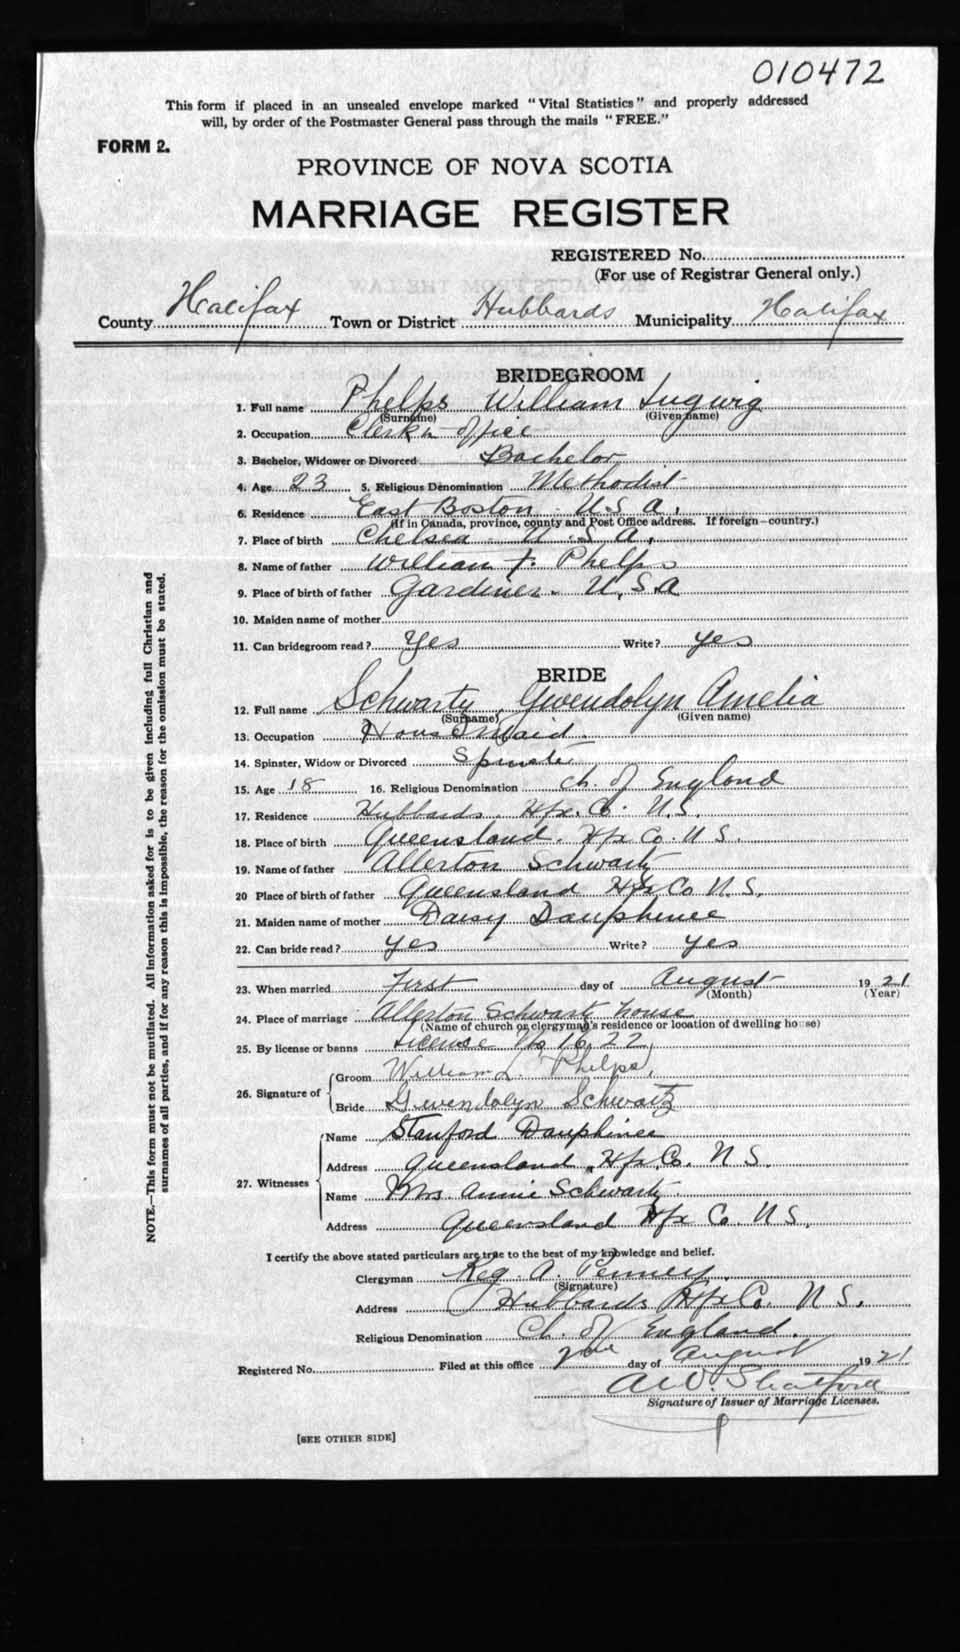 010472
This form if placed in an unsealed envelope marked "Vital Statistics" and properly addressed
will, by order of the Postmaster General pass through the mails "FREE."
FORM 2.
PROVINCE OF NOVA SCOTIA
MARRIAGE REGISTER
REGISTERED No.
(For use of Registrar General only.)
County Halifax Town or District Hubbards Municipality Halifax
BRIDEGROOM
1. Full name Phelps William
(Surname) (Given name)
2. Occupation Clerk in office
3. Bachelor, Widower or Divorced Bachelor
4. Age 23 5. Religious Denomination Methodist
6. Residence East Boston U.S.A.
(If in Canada, province, county and Post Office address. If foreign—country.)
7. Place of birth Chelsea U.S.A.
8. Name of father William F. Phelps
9. Place of birth of father Gardiner. U.S.A
10. Maiden name of mother
11. Can bridegroom read? Yes Write? yes
BRIDE
12. Full name Schwartz, Gwendolyn Amelia
(Surname) (Given name)
13. Occupation House Maid.
14. Spinster, Widow or Divorced Spinster
15. Age 18 16. Religious Denomination Ch. of England
17. Residence Hubbards. Hfx. Co. N.S.
18. Place of birth Queensland. Hfx Co. N.S.
19. Name of father Allerton Schwartz
20 Place of birth of father Queensland Hfx Co N.S.
21. Maiden name of mother Daisy Dauphinee
22. Can bride read? yes Write? yes
23. When married First day of August 1921
(Month) (Year)
24. Place of marriage Allerton Schwartz house
(Name of church or clergyman's residence or location of dwelling house)
25. By license or banns License No 16,22
26. Signature of Groom William L. Phelps,
Bride Gwendolyn Schwartz
27. Witnesses Name Stanford Dauphinee
Address Queensland, Hfx. Co. N.S.
Name Mrs Annie Schwartz.
Address Queensland Hfx Co. N.S.
I certify the above stated particulars are true to the best of my knowledge and belief.
Clergyman Reg A. Penney.
(Signature)
Address Hubbards Hfx Co N.S.
Religious Denomination Ch. of England.
Registered No. Filed at this office day of August 1921
A.W. Shatford
Signature of Issuer of Marriage Licenses.
[SEE OTHER SIDE]
NOTE.—This form must not be mutilated. All information asked for is to be given including full Christian and
surnames of all parties, and if for any reason this is impossible, the reason for the omission must be stated.